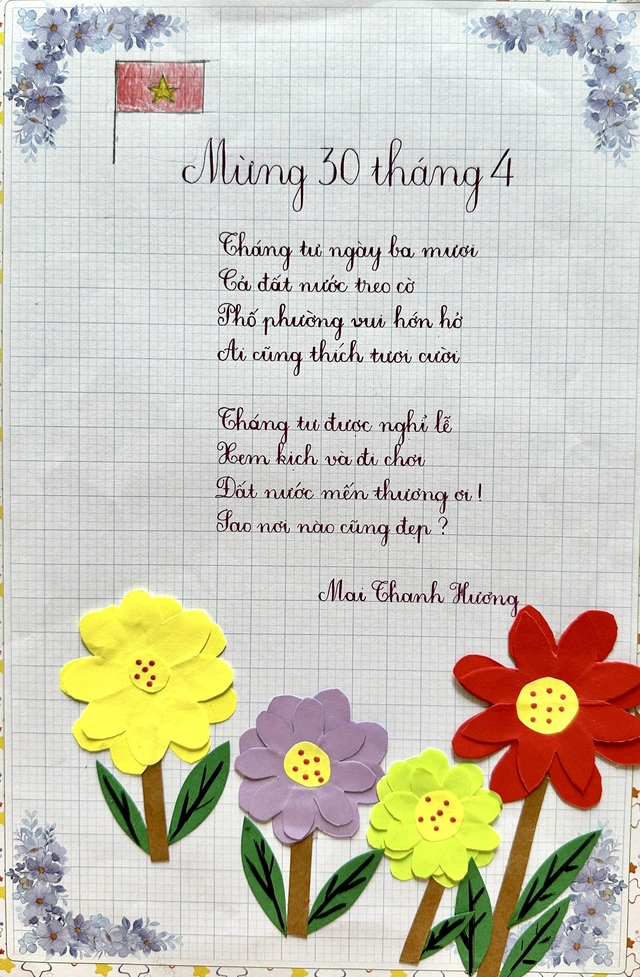 Mừng 30 tháng 4
Tháng tư ngày ba mươi
Cả đất nước treo cờ
Phố phường vui hớn hở
Ai cũng thích tươi cười
Tháng tư được nghỉ lễ
Xem kịch và đi chơi
Đất nước mến thương ơi!
Sao nơi nào cũng đẹp?
Mai Thanh Hương